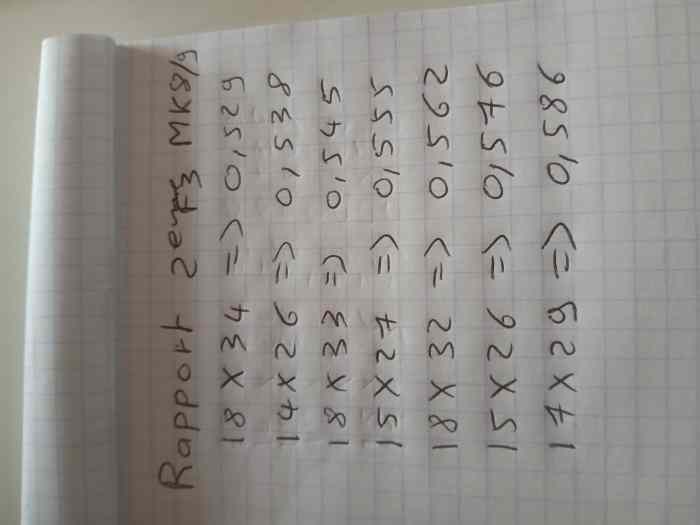 Rapport 2eme F3 MK8/9
18 X 34 => 0,529
14 X 26 => 0,538
18 X 33 => 0,545
15 X 27 => 0,555
18 X 32 => 0,562
15 X 26 => 0,576
17 X 29 => 0,586